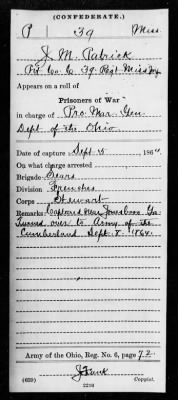 (CONFEDERATE.)
P 39 Miss.
J. M. Patrick
Pvt Co. C, 39 Regt. Miss. Inf.
Appears on a roll of
Prisoners of War
in charge of Pro. Mar. Gen.
Dept of the Ohio.
Date of capture Sept 5, 1864
On what charge arrested
Brigade Sears
Division Frenches
Corps Stewart
Remarks: Captured near Jonesboro Ga
Turned over to Army of the
Cumberland Sept. 8. 1864.
Army of the Ohio, Reg. No. 6, page 72
(639) 2298 Copyist.